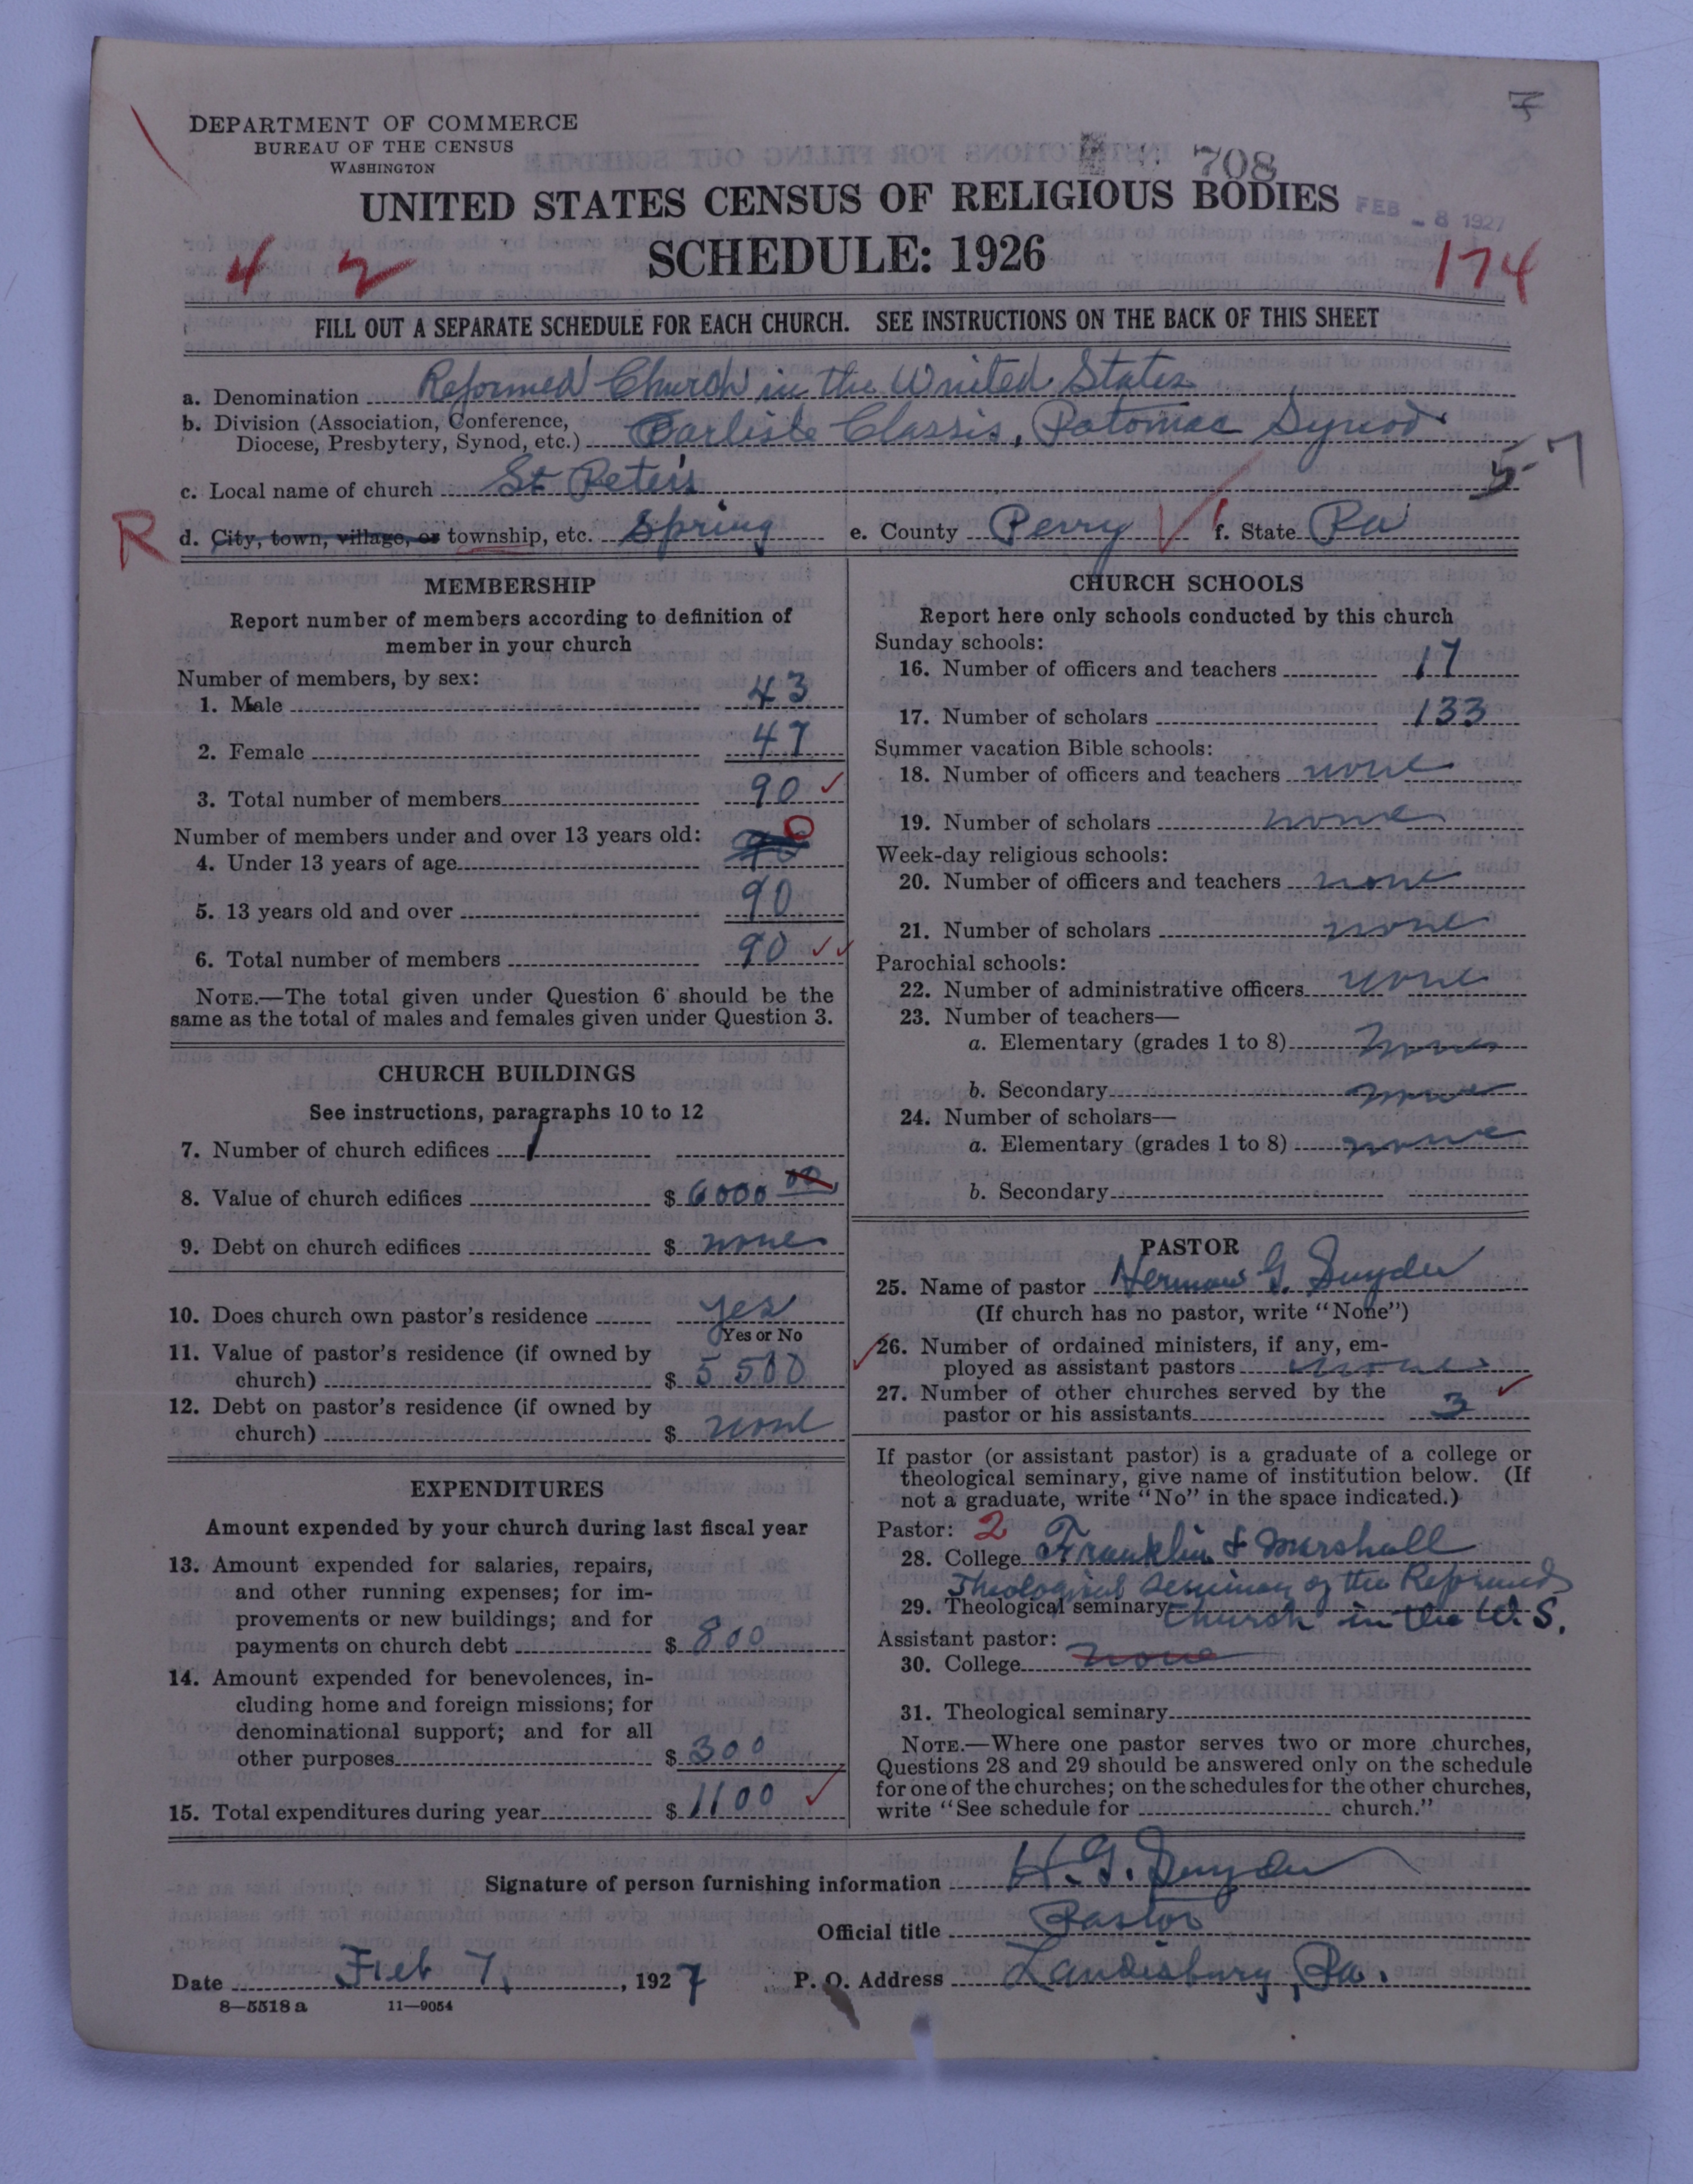 7
DEPARTMENT OF COMMERCE
BUREAU OF THE CENSUS
WASHINGTON
708
UNITED STATES CENSUS OF RELIGIOUS BODIES
FEB - 8 1927
SCHEDULE: 1926
4 2
174
FILL OUT A SEPARATE SCHEDULE FOR EACH CHURCH. SEE INSTRUCTIONS ON THE BACK OF THIS SHEET
a. Denomination Reformed Church in the United States
b. Division (Association, Conference,
Diocese, Presbytery, Synod, etc.) Carlisle Classis, Potomac Synod
5-7
c. Local name of church St Peter's
R
d. City, town, village, or township, etc. Spring e. County Perry f. State Pa
MEMBERSHIP
Report number of members according to definition of
member in your church
Number of members, by sex:
1. Male 43
2. Female 47
3. Total number of members 90
Number of members under and over 13 years old:
4. Under 13 years of age 90 0
5. 13 years old and over 90
6. Total number of members 90
NOTE.—The total given under Question 6 should be the
same as the total of males and females given under Question 3.
CHURCH BUILDINGS
See instructions, paragraphs 10 to 12
7. Number of church edifices 1
8. Value of church edifices $ 6000 00
9. Debt on church edifices $ none
10. Does church own pastor's residence yes
Yes or No
11. Value of pastor's residence (if owned by
church) $ 5500
12. Debt on pastor's residence (if owned by
church) $ none
EXPENDITURES
Amount expended by your church during last fiscal year
13. Amount expended for salaries, repairs,
and other running expenses; for im-
provements or new buildings; and for
payments on church debt $ 800
14. Amount expended for benevolences, in-
cluding home and foreign missions; for
denominational support; and for all
other purposes $ 300
15. Total expenditures during year $ 1100
CHURCH SCHOOLS
Report here only schools conducted by this church
Sunday schools:
16. Number of officers and teachers 17
17. Number of scholars 133
Summer vacation Bible schools:
18. Number of officers and teachers none
19. Number of scholars none
Week-day religious schools:
20. Number of officers and teachers none
21. Number of scholars none
Parochial schools:
22. Number of administrative officers none
23. Number of teachers—
a. Elementary (grades 1 to 8) none
b. Secondary none
24. Number of scholars—
a. Elementary (grades 1 to 8) none
b. Secondary
PASTOR
25. Name of pastor Herman G. Snyder
(If church has no pastor, write "None")
26. Number of ordained ministers, if any, em-
ployed as assistant pastors none
27. Number of other churches served by the
pastor or his assistants 3
If pastor (or assistant pastor) is a graduate of a college or
theological seminary, give name of institution below. (If
not a graduate, write "No" in the space indicated.)
Pastor: 2
28. College Franklin & Marshall
Theological Seminary of the Reformed
29. Theological seminary Church in the U.S.
Assistant pastor:
30. College none
31. Theological seminary
NOTE.—Where one pastor serves two or more churches,
Questions 28 and 29 should be answered only on the schedule
for one of the churches; on the schedules for the other churches,
write "See schedule for church."
Signature of person furnishing information H. G. Snyder
Official title Pastor
Date Feb 7, 1927 P. O. Address Landisburg, Pa.
8—5518 a 11—9054